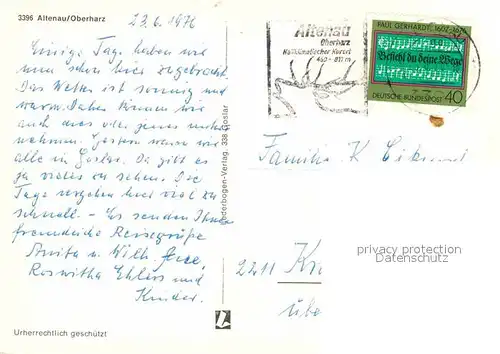 3396 Altenau/Oberharz
23.6.1976
Einige Tage haben wir
nun schon hier zugebracht.
Das Wetter ist sonnig und
warm. Daher können wir
auch dies oder jenes unter-
nehmen. Gestern waren wir
alle in Goslar. Da gibt es
ja vieles zu sehen. Die
Tage vergehen hier viel zu
schnell. – Es senden Ihnen
freundliche Reisegrüße
Anita u. Wilh.
Roswitha Ehlers und
Kinder.
Urherrechtlich geschützt
nderbogen-Verlag, 338 Goslar
Altenau
Oberharz
Heilklimatischer Kurort
450 - 811 m
PAUL GERHARDT · 1607-1676
Befiehl du deine Wege
DEUTSCHE BUNDESPOST 40
Familie K
privacy protection
Datenschutz
2211 Kr
übe